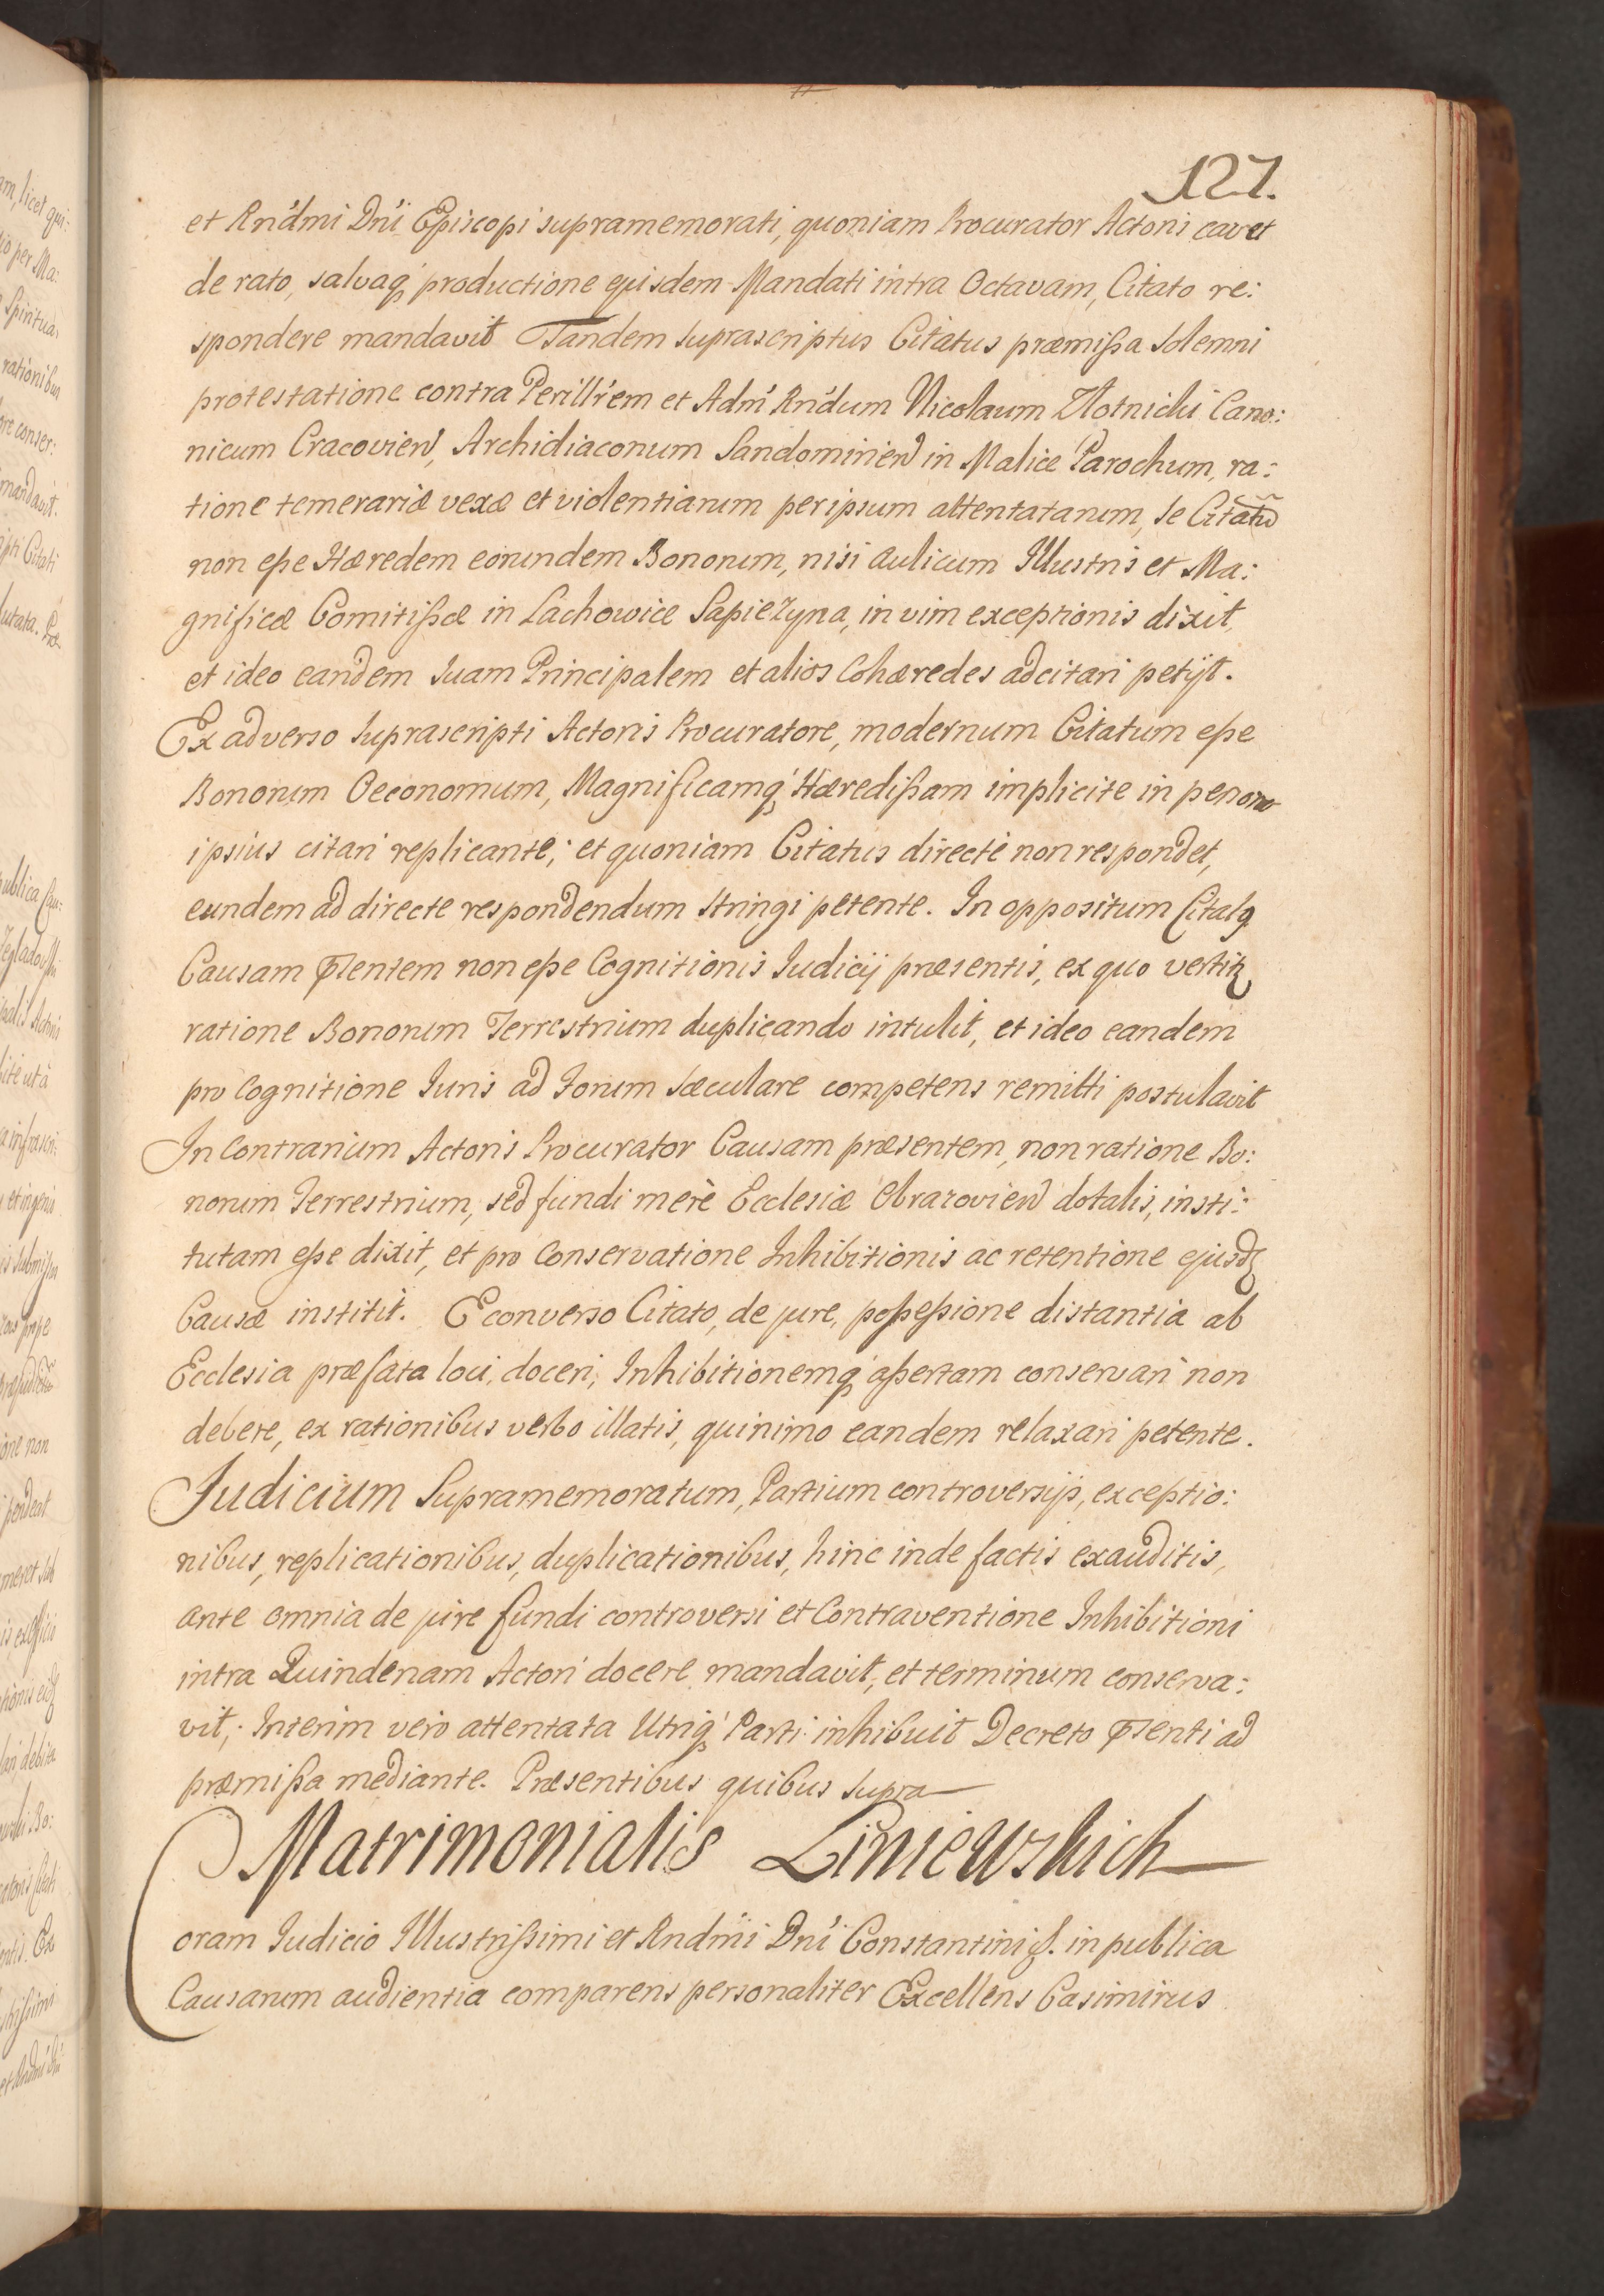 127.
et Rńdmi Dńi Episcopi supramemorati, quoniam Procurator Actori cavet
de rato, salvaq́ productione ejusdem Mandati intra Octavam, Citato re:
spondere mandavit Tandem suprascriptus Citatus præmissa solemni
protestatione contra Perillŕem et Adḿ Rńdum Nicolaum Złotnicki Cano:
nicum Cracovien, Archidiaconum Sandomirien in Malice Parochum, ra:
tione temerariæ vexæ et violentiarum per ipsum attentatarum, se Citatũ
non esse Hæredem eorundem Bonorum, nisi aulicum Illustris et Ma:
gnificæ Comitissæ in Lachowice Sapiezyna, in vim exceptionis dixit,
et ideo eandem suam Principalem et alios Cohæredes adcitari petijt.
Ex adverso suprascripti Actoris Procuratore, modernum Citatum esse
Bonorum Oeconomum, Magnificamq́ Hæredissam implicite in persona
ipsius citari replicante; et quoniam Citatus directè non respondet,
eundem ad directe respondendum stringi petente. In oppositum Citatꝯ
Causam p̃ntem non esse Cognitionis Judicij præsentis, ex quo vertitꝛ
ratione Bonorum Terrestrium duplicando intulit, et ideo eandem
pro Cognitione Juris ad Forum sæculare competens remitti postulavit
In Contrarium Actoris Procurator Causam præsentem, non ratione Bo:
norum Terrestrium, sed fundi merè Ecclesiæ Obrazovien dotalis, insti:
tutam esse dixit, et pro Conservatione Inhibitionis ac retentione ejusdꝫ
Causæ institit. Econverso Citato, de jure, possessione distantia ab
Ecclesia præfata loci, doceri, Inhibitionemq́ assertam conservari non
debere, ex rationibus verbo illatis, quinimo eandem relaxari petente.
Judicium Supramemoratum, Partium controversijs, exceptio:
nibus, replicationibus, duplicationibus, hinc inde factis exauditis,
ante omnia de jure fundi controversi et Contraventione Inhibitioni
intra Quindenam Actori docere mandavit, et terminum conserva:
vit; Interim vero attentata Utriq́ Parti inhibuit Decreto p̃senti ad
præmissa mediante. Præsentibus quibus supra
Matrimonialis Liniewskich
Coram Judicio Illustrissimi et Rndḿi Dńi Constantini &. in publica
Causarum audientia comparens personaliter Excellens Casimirus